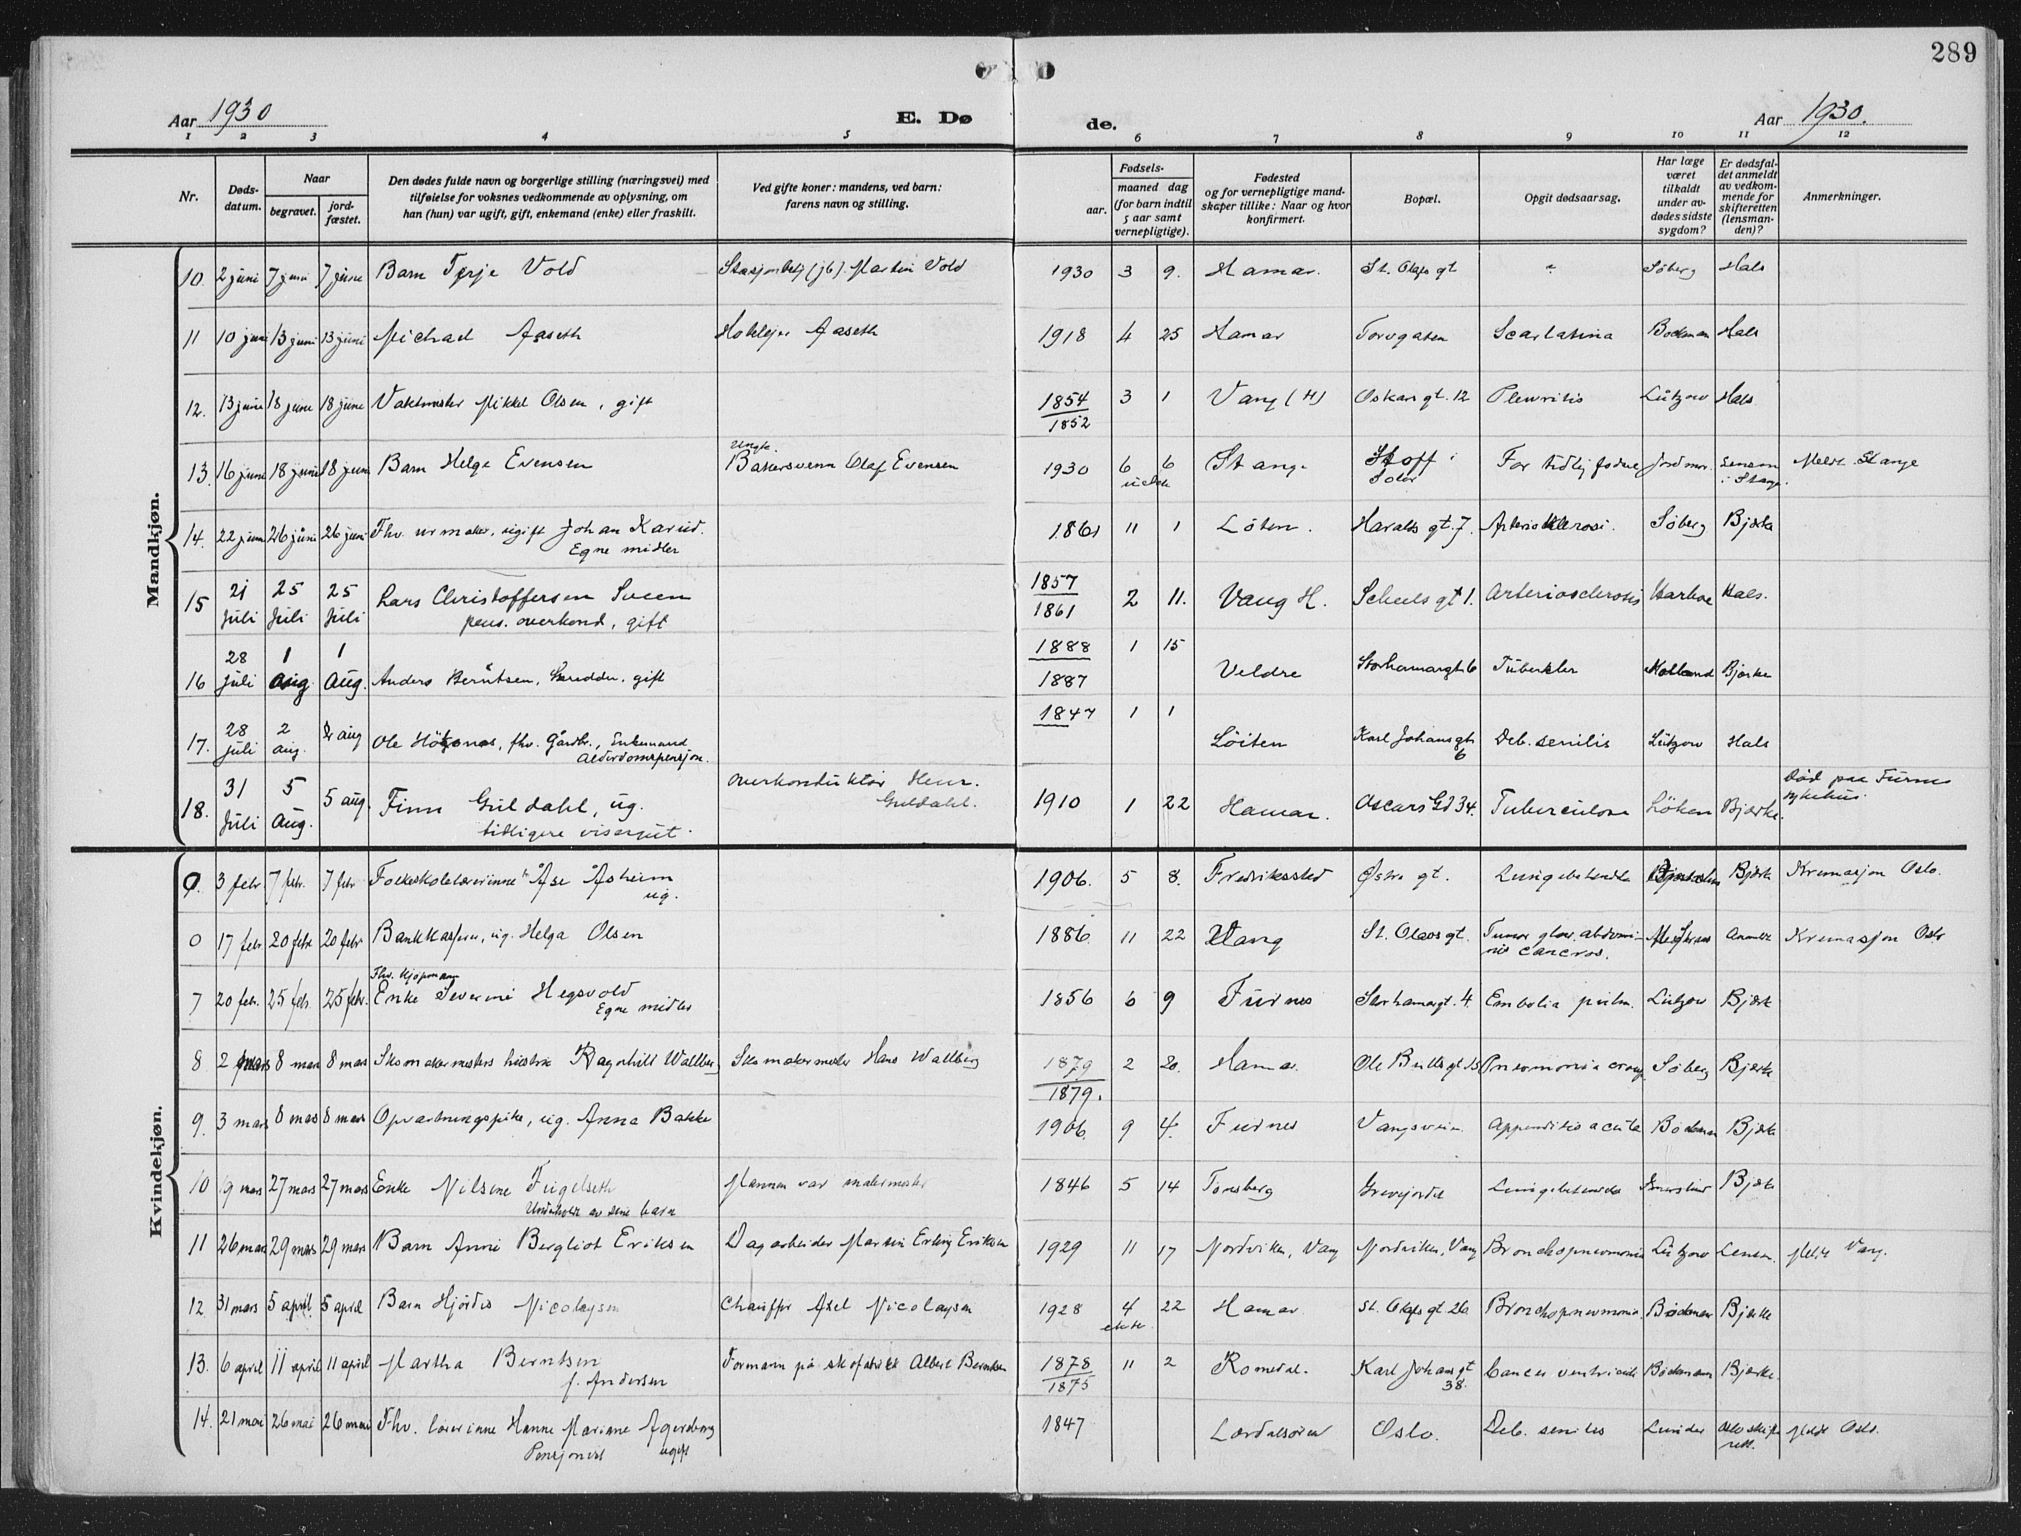 289
Aar 1930
E. Dø
de.
Aar 1930.
1 2 3 4 5 6 7 8 9 10 11 12
Nr.
Døds-
datum.
Naar
begravet.
jord-
fæstet.
Den dødes fulde navn og borgerlige stilling (næringsvei) med
tilføielse for voksnes vedkommende av oplysning, om
han (hun) var ugift, gift, enkemand (enke) eller fraskilt.
Ved gifte koner: mandens, ved barn:
farens navn og stilling.
Fødsels-
aar.
maaned dag
(for barn indtil
5 aar samt
vernepligtige).
Fødested
og for vernepligtige mand-
skaper tillike: Naar og hvor
konfirmert.
Bopæl.
Opgit dødsaarsag.
Har læge
været
tilkaldt
under av-
dødes sidste
sygdom?
Er dødsfal-
det anmeldt
av vedkom-
mende for
skifteretten
(lensman-
den)?
Anmerkninger.
Mandkjøn.
10. 2 juni 7 juni 7 june Barn Terje Vold Martin Vold 1930 3 9. Hamar. St. Olafs gt " Søberg Hals
11 10 juni 13 juni 13 juni Michael Aaseth Aaseth 1918 4 25 Hamar Torvgaten Scarlatina Bodman Hals
12. 13 june 18 june 18 june Vaktmester Mikkel Olsen, gift 1854 3 1 Vang (H) Oskars gt. 12 Pleuritis Lützow Hals
1852
13. 16 june 18 june 18 juni Barn Helge Evensen Ungk. Bakersvenn Olaf Evensen 1930 6 6 Stange For tidlig fødsel Jordmor. Lensm. Meldt Stange
Solør i Stange.
14. 22 juni 26 juni 26 juni Fhv. urmaker, ugift Johan Karud. 1861 11 1 Löten. Haralds gt. 7. Arteriosklerosi. Søberg Bjerke
Egne midler
15 21 Juli 25 Juli 25 Juli Lars Christoffersen Sveen 1857 2 11. Vang H. Scheels gt 1. Arteriosclerosis Harboe Hals.
pens. overkond, gift 1861
16 28 juli 1 aug 1 Aug. Anders Berntsen, Skredder, gift 1888 1 15 Veldre Storhamargt 6 Tuberkler Holland Bjerke
1887
17. 28 juli 2 aug. 2 aug Ole fhv. Gårdbr., Enkemand 1847 1 1 Löiten Karl Johansgt. 6 Deb. senilis Lützow Hals
Alderdomspensjon.
18. 31 Juli 5 Aug. 5 aug. Finn Guldahl, ug. Overkonduktör Henr. Guldahl. 1910 1 22 Hamar. Oscars Gd 34. Tuberculose Löken Bjerke. Död paa Furnes sykehus.
tidligere visergut.
Kvindekjøn.
0. 3 febr 7 febr. 7 febr Folkeskolelærerinne Åse Åsheim 1906. 5 8. Fredriksstad Østre gt. Lungebetendelse Bjerke Kremasjon Oslo.
ug.
0 17 febr. 20 febr 20 febr Bankkasserer, ug. Helga Olsen 1886. 11 22 Vang St. Olavs gt. Tumor abdomi-
nis cancros. Kremasjon Oslo
7 20 febr. 25 febr. 25 febr. Fhv. kjøpmann
Enke Severine Hegsvold 1856 6 9 Furnes Storhamargt. 4. Embolia pulm. Lützow Bjerke
Egne midler
8 2 mars 8 mars 8 mars Skomakermesters hustru Ragnhild Wallberg Skomakermester Hans Wallberg 1879 2 20. Hamar. Ole Bulls gt 15 Pneumonia Søberg Bjerke
1879.
9. 3 mars 8 mars 8 mars Opvartningspike, ug. Anna Bakke 1906. 9 4. Furnes Vangsveien. Appenditis acuta Bodman Bjerke
10 19 mars 27 mars 27 mars Enke Nilsine Fugelseth Mannen var malermester 1846 5 14 Tønsberg Grevejordet Lungebetendelse Bjerke
Underholdt av sine barn
11 26 mars 29 mars 29 mars Barn Anne Bergliot Eriksen Dagarbeider Martin Erling Eriksen 1929 11 17 Nordviken, Vang Nordviken, Vang Bronchopneumonia Lützow Lensm. Meldt Vang.
12 31 mars 5 april 5 april Barn Hjördis Nicolaysen Chauffør Axel Nicolaysen 1928 4 22 Hamar St. Olafs gt. 26 Bronchopneumonia Bodman Bjerke
13. 6 april 11 april 11 april Martha Berntsen Formann på skofabrikk Albert Berntsen 1878 11 2 Romedal. Karl Johans gt 38. Cancer ventriculi Bodman Bjerke.
f. Andersen 1875
14. 21 mai 26 mai 26 mai Fhv. lærerinne Hanne Mariane Agersborg 1847 Lærdalsøren Oslo. Deb. senilis Lunder Oslo skifte-
rett. Meldt Oslo.
Pensjonist ugift